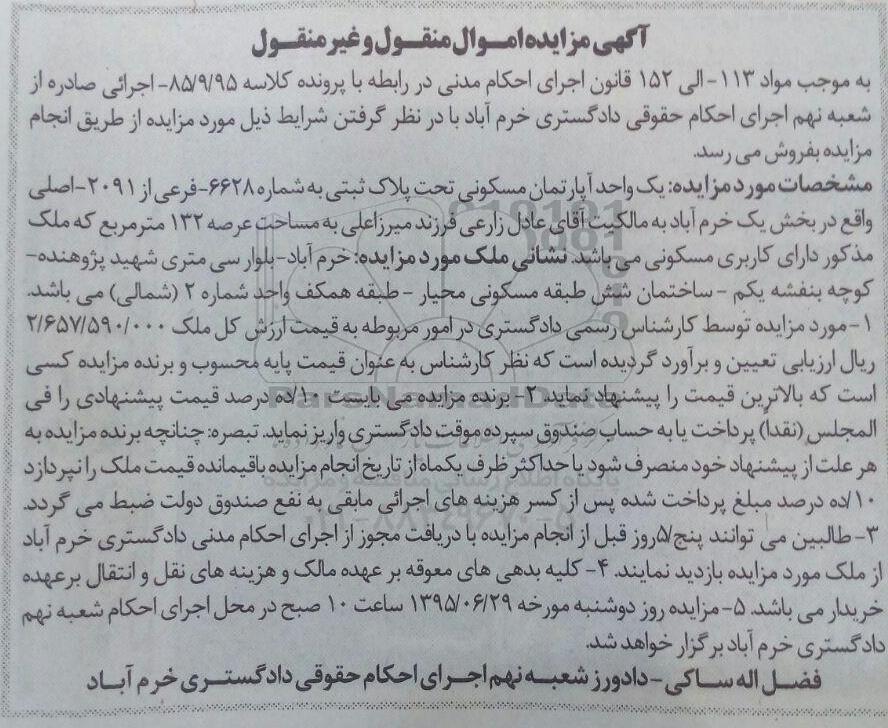 آگهی مزایده اموال منقول و غیر منقول
به موجب مواد ۱۱۳- الی ۱۵۲ قانون اجرای احکام مدنی در رابطه با پرونده کلاسه ۸۵/۹/۹۵- اجرائی صادره از
شعبه نهم اجرای احکام حقوقی دادگستری خرم آباد با در نظر گرفتن شرایط ذیل مورد مزایده از طریق انجام
مزایده بفروش می رسد.
مشخصات مورد مزایده: یک واحد آپارتمان مسکونی تحت پلاک ثبتی به شماره ۶۶۲۸- فرعی از ۲۰۹۱- اصلی
واقع در بخش یک خرم آباد به مالکیت آقای عادل زارعی فرزند میرزاعلی به مساحت عرصه ۱۳۲ مترمربع که ملک
مذکور دارای کاربری مسکونی می باشد. نشانی ملک مورد مزایده: خرم آباد- بلوار سی متری شهید پژوهنده-
کوچه بنفشه یکم - ساختمان شش طبقه مسکونی محیار - طبقه همکف واحد شماره ۲ (شمالی) می باشد.
۱- مورد مزایده توسط کارشناس رسمی دادگستری در امور مربوطه به قیمت ارزش کل ملک ۲/۶۵۷/۵۹۰/۰۰۰
ریال ارزیابی تعیین و برآورد گردیده است که نظر کارشناس به عنوان قیمت پایه محسوب و برنده مزایده کسی
است که بالاترین قیمت را پیشنهاد نماید ۲- برنده مزایده می بایست ۱۰/ده درصد قیمت پیشنهادی را فی
المجلس (نقدا) پرداخت یا به حساب صندوق سپرده موقت دادگستری واریز نماید. تبصره: چنانچه برنده مزایده به
هر علت از پیشنهاد خود منصرف شود یا حداکثر ظرف یکماه از تاریخ انجام مزایده باقیمانده قیمت ملک را نپردازد
۱۰/ده درصد مبلغ پرداخت شده پس از کسر هزینه های اجرائی مابقی به نفع صندوق دولت ضبط می گردد.
۳- طالبین می توانند پنج/۵روز قبل از انجام مزایده با دریافت مجوز از اجرای احکام مدنی دادگستری خرم آباد
از ملک مورد مزایده بازدید نمایند. ۴- کلیه بدهی های معوقه بر عهده مالک و هزینه های نقل و انتقال برعهده
خریدار می باشد. ۵- مزایده روز دوشنبه مورخه ۱۳۹۵/۰۶/۲۹ ساعت ۱۰ صبح در محل اجرای احکام شعبه نهم
دادگستری خرم آباد برگزار خواهد شد.
فضل اله ساکی - دادورز شعبه نهم اجرای احکام حقوقی دادگستری خرم آباد
ParsNamadData